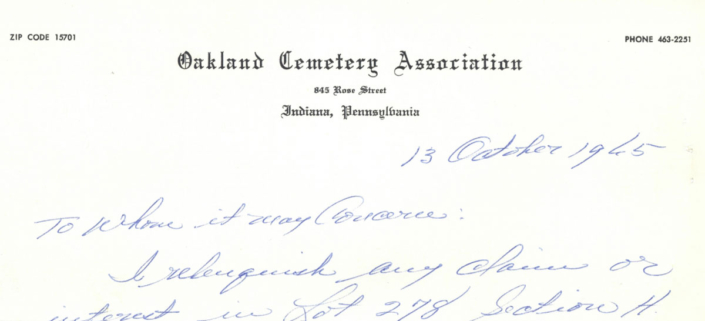 ZIP CODE 15701
PHONE 463-2251
Oakland Cemetery Association
845 Rose Street
Indiana, Pennsylvania
13 October 1965
To Whom it may Concern:
I relenquish any claim or
interest in Lot 278 Section H.